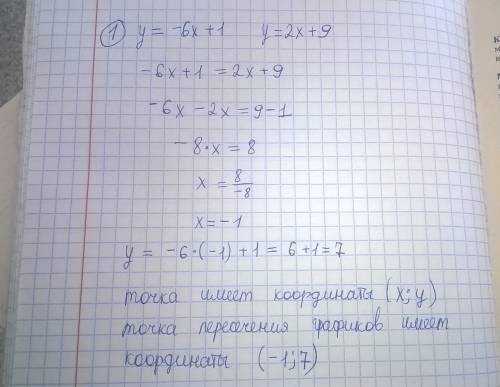 ① y = -6x+1 y=2x+9
-6x+1 = 2x+9
-6x -2x = 9-1
-8·x = 8
x = 8/-8
x = -1
y = -6·(-1)+1 = 6+1=7
точка имеет координаты (x; y)
точка пересечения графиков имеет
координаты (-1; 7)